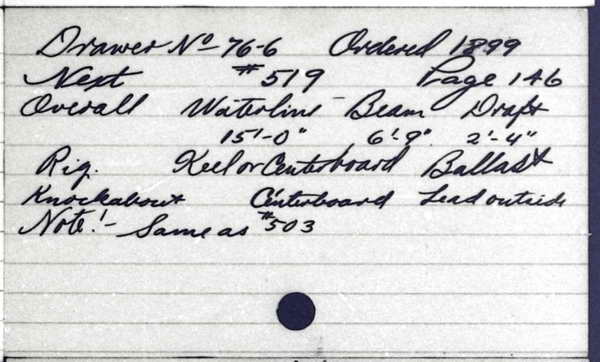 Drawer No 76-6 Ordered 1899
Next #519 Page 146
Overall Waterline Beam Draft
15'-0" 6'-9" 2'-4"
Rig. Keel or Centerboard Ballast
Knockabout Centerboard Lead outside
Note!- Same as #503